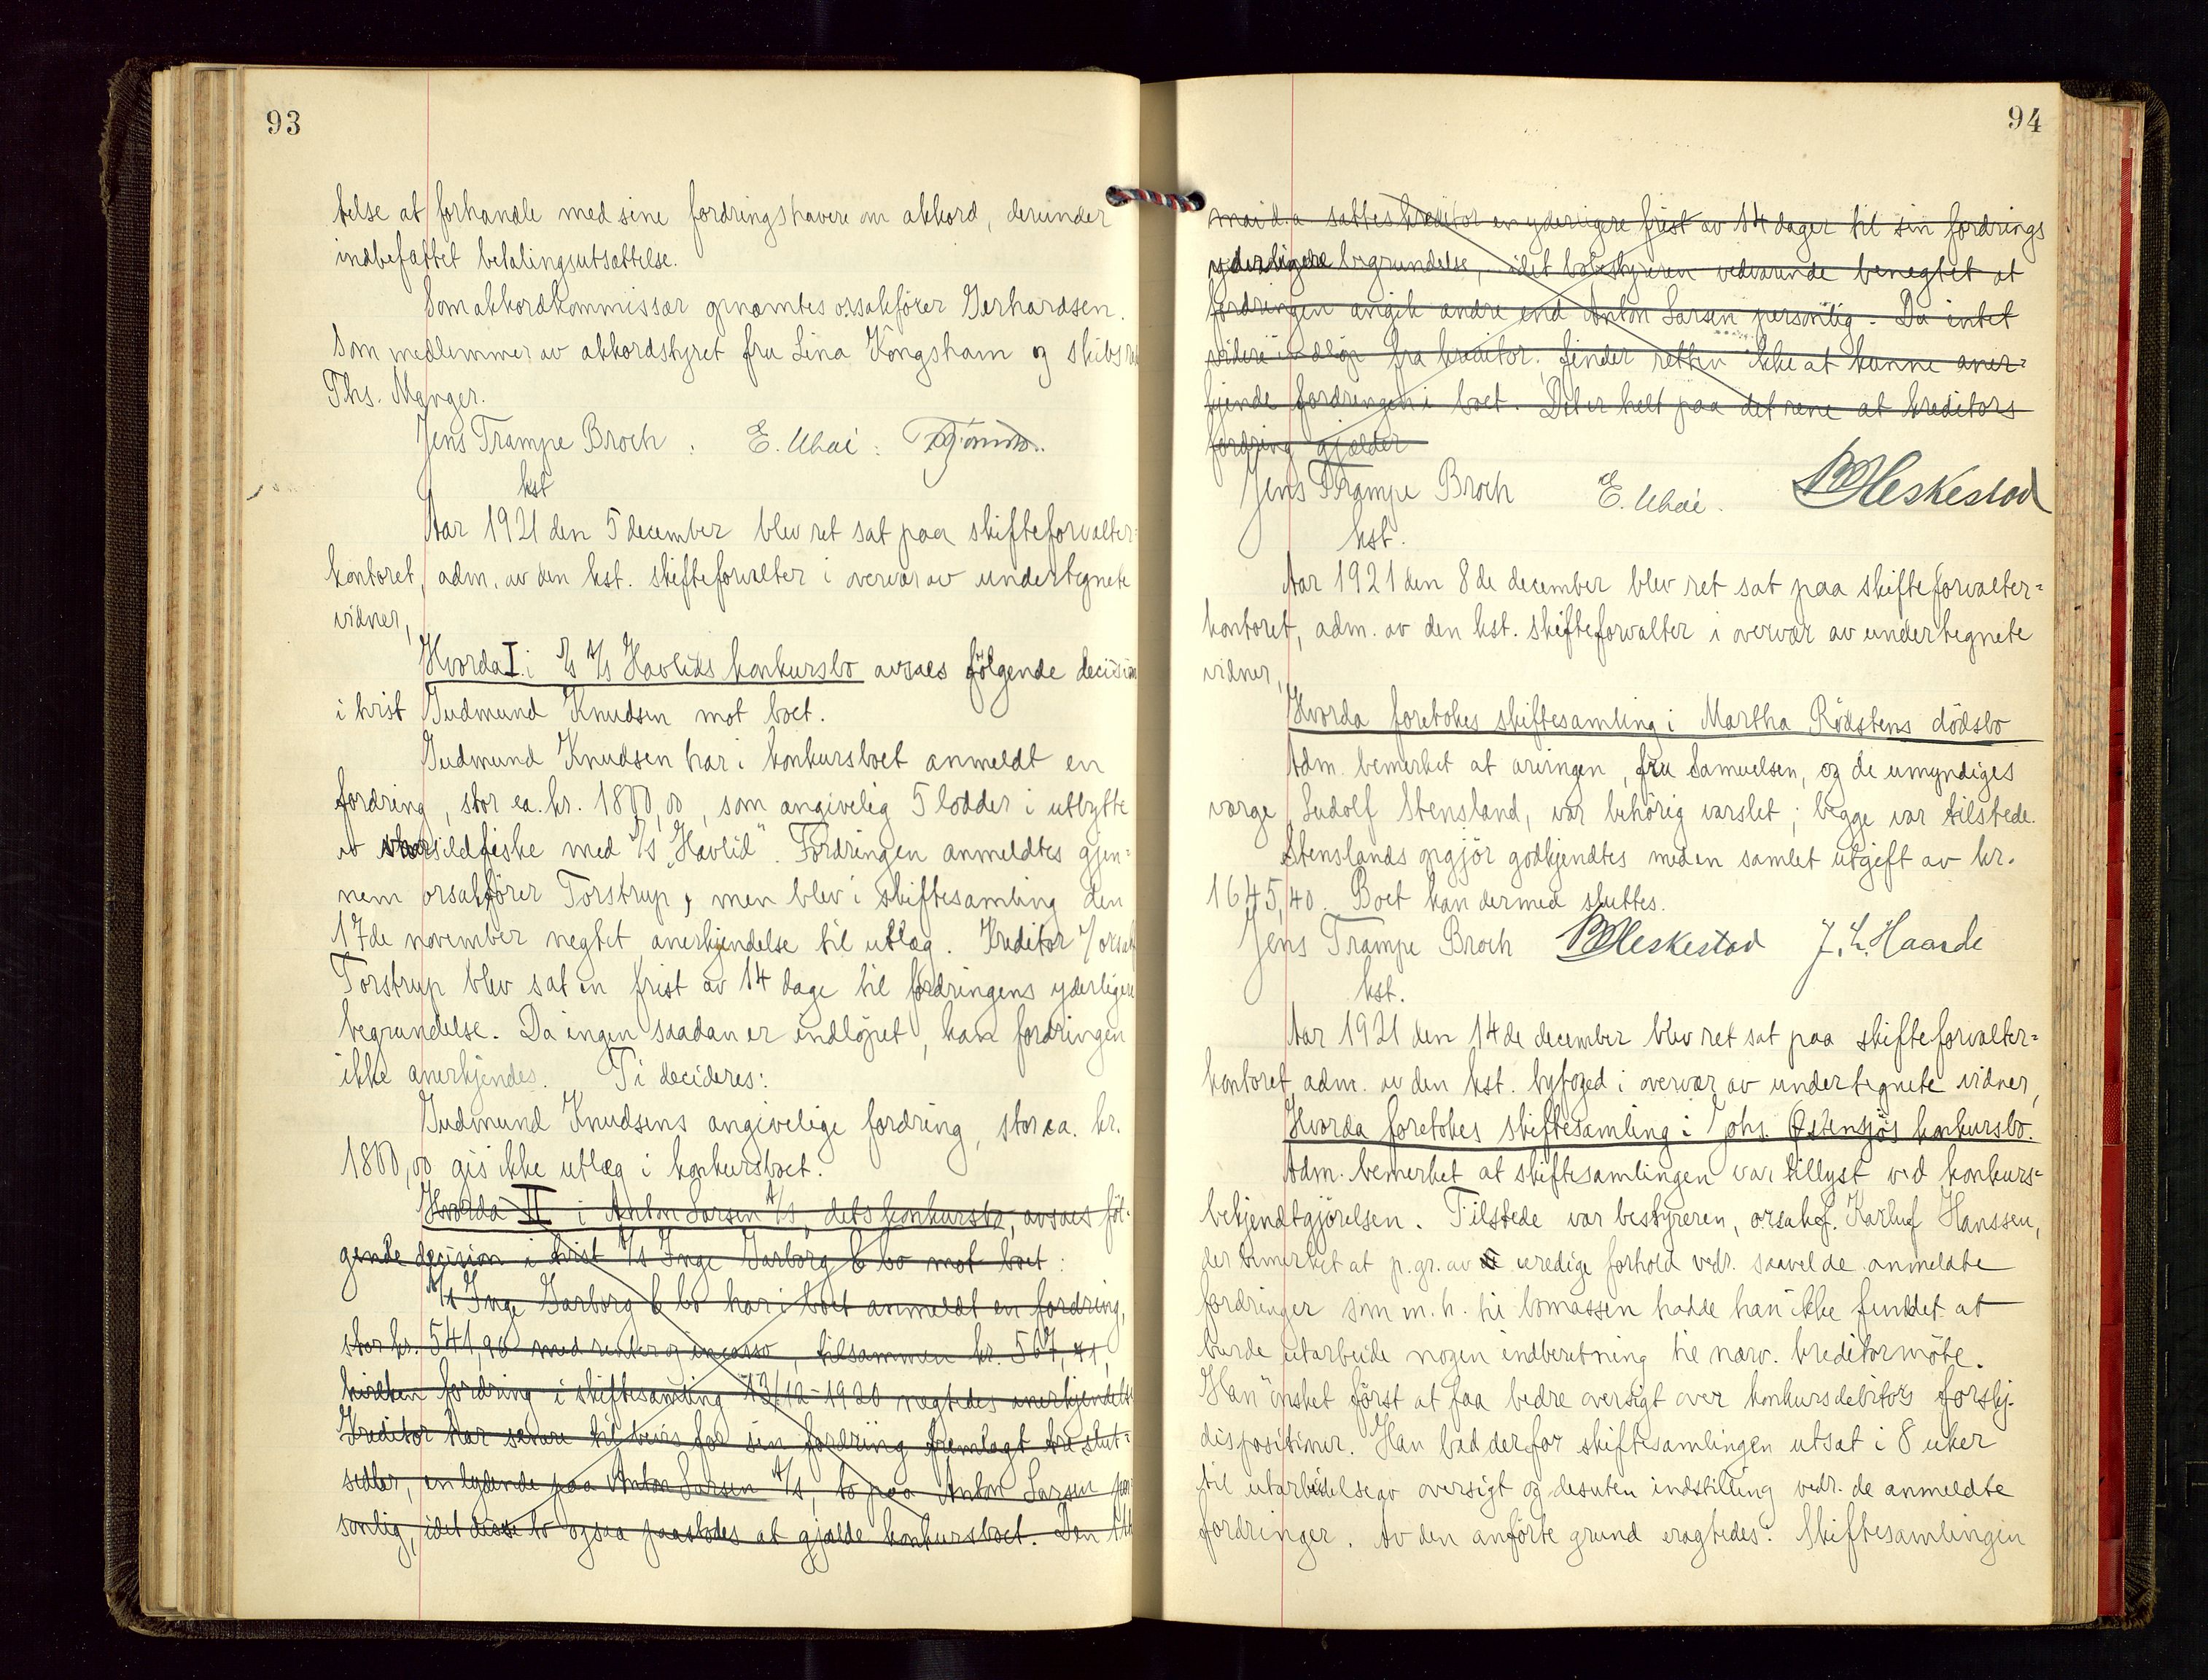 93
telse at forhandle med sine fordringshavere om akkord, derunder
indbefattet betalingsutsættelse.
Som akkordkommissær opnævntes o.sakfører Gerhardsen.
Som medlemmer av akkordstyret fru Lina Kongsham og skibs
Ths. Manger.
Jens Trampe Broch. E. Uhai:
kst
Aar 1921 den 5 december blev ret sat paa skifteforvalter-
kontoret, adm. av den kst. skifteforvalter i overvær av undertegnete
vidner,
Hvorda I. i S/S A/S Havlids konkursbo avsaes følgende decision
i tvist Gudmund Knudsen mot boet.
Gudmund Knudsen har i konkursboet anmeldt en
fordring, stor ca. kr. 1800,00, som angivelig 5 lodder i utbytte
av storsildfiske med S/S "Havlid". Fordringen anmeldtes gjen-
nem orsakfører Torstrup, men blev i skiftesamling den
17de november negtet anerkjendelse til utlæg. Kreditor v/ orsakf
Torstrup blev sat en frist av 14 dage til fordringens yderligere
begrundelse. Da ingen saadan er indløpet, kan fordringen
ikke anerkjendes. Ti decideres:
Gudmund Knudsens angivelige fordring, stor ca. kr.
1800,00 gis ikke utlæg i konkursboet.
Hvorda II i Anton Larsen A/S, dets konkursbo, avsaes føl-
gende decision i tvist A/S Inge Garborg & bo mot boet:
A/S Inge Garborg & bo har i boet anmeldt en fordring,
stor kr. 541,90 med renter og incasso, tilsammen kr. 567,41,
hvilken fordring i skiftesamling 13/12-1920 negtedes anerkjendelse
Kreditor har senere til bevis for sin fordring fremlagt tre slut-
sedler, en lydende paa Anton Larsen A/S, to paa Anton Larsen per-
sonlig, idet disse to ogsaa paastodes at gjælde konkursboet. Den
94
mai d.a. sattes kreditor en yderligere frist av 14 dager til sin fordrings
yderligere begrundelse, idet bobestyreren vedvarende benegtet at
fordringen angik andre end Anton Larsen personlig. Da intet
videre indløp fra kreditor, finder retten ikke at kunne aner-
kjende fordringen i boet. Det er helt paa det rene at kreditors
fordring gjælder
Jens Trampe Broch E. Uhai. Heskestad
kst.
Aar 1921 den 8de december blev ret sat paa skifteforvalter-
kontoret, adm. av den kst. skifteforvalter i overvær av undertegnete
vidner,
Hvorda foretokes skiftesamling i Martha Rødstens dødsbo
Adm. bemerket at arvingen, fru Samuelsen, og de umyndiges
værge Ludolf Stensland, var behørig varslet; begge var tilstede.
Stenslands opgjør godkjendtes med en samlet utgift av kr.
1645,40. Boet kan dermed sluttes.
Jens Trampe Broch Heskestad J. L. Haarde
kst.
Aar 1921 den 14de december blev ret sat paa skifteforvalter-
kontoret, adm. av den kst. byfoged i overvær av undertegnete vidner,
Hvorda foretokes skiftesamling i Johs. Østensjøs konkursbo.
Adm. bemerket at skiftesamlingen var tillyst ved konkurs-
bekjendtgjørelsen. Tilstede var bestyreren, orsakf. Karluf Hanssen,
der bemerket at p.gr. av uredige forhold vedr. saavel de anmeldte
fordringer som m.h. til bomassen hadde han ikke fundet at
burde utarbeide nogen indberetning til nærv. kreditormøte.
Han ønsket først at faa bedre oversigt over konkursdebitors forskj.
dispositioner. Han bad derfor skiftesamlingen utsat i 8 uker
til utarbeidelse av oversigt og desuten indstilling vedr. de anmeldte
fordringer. Av den anførte grund eragtedes: Skiftesamlingen